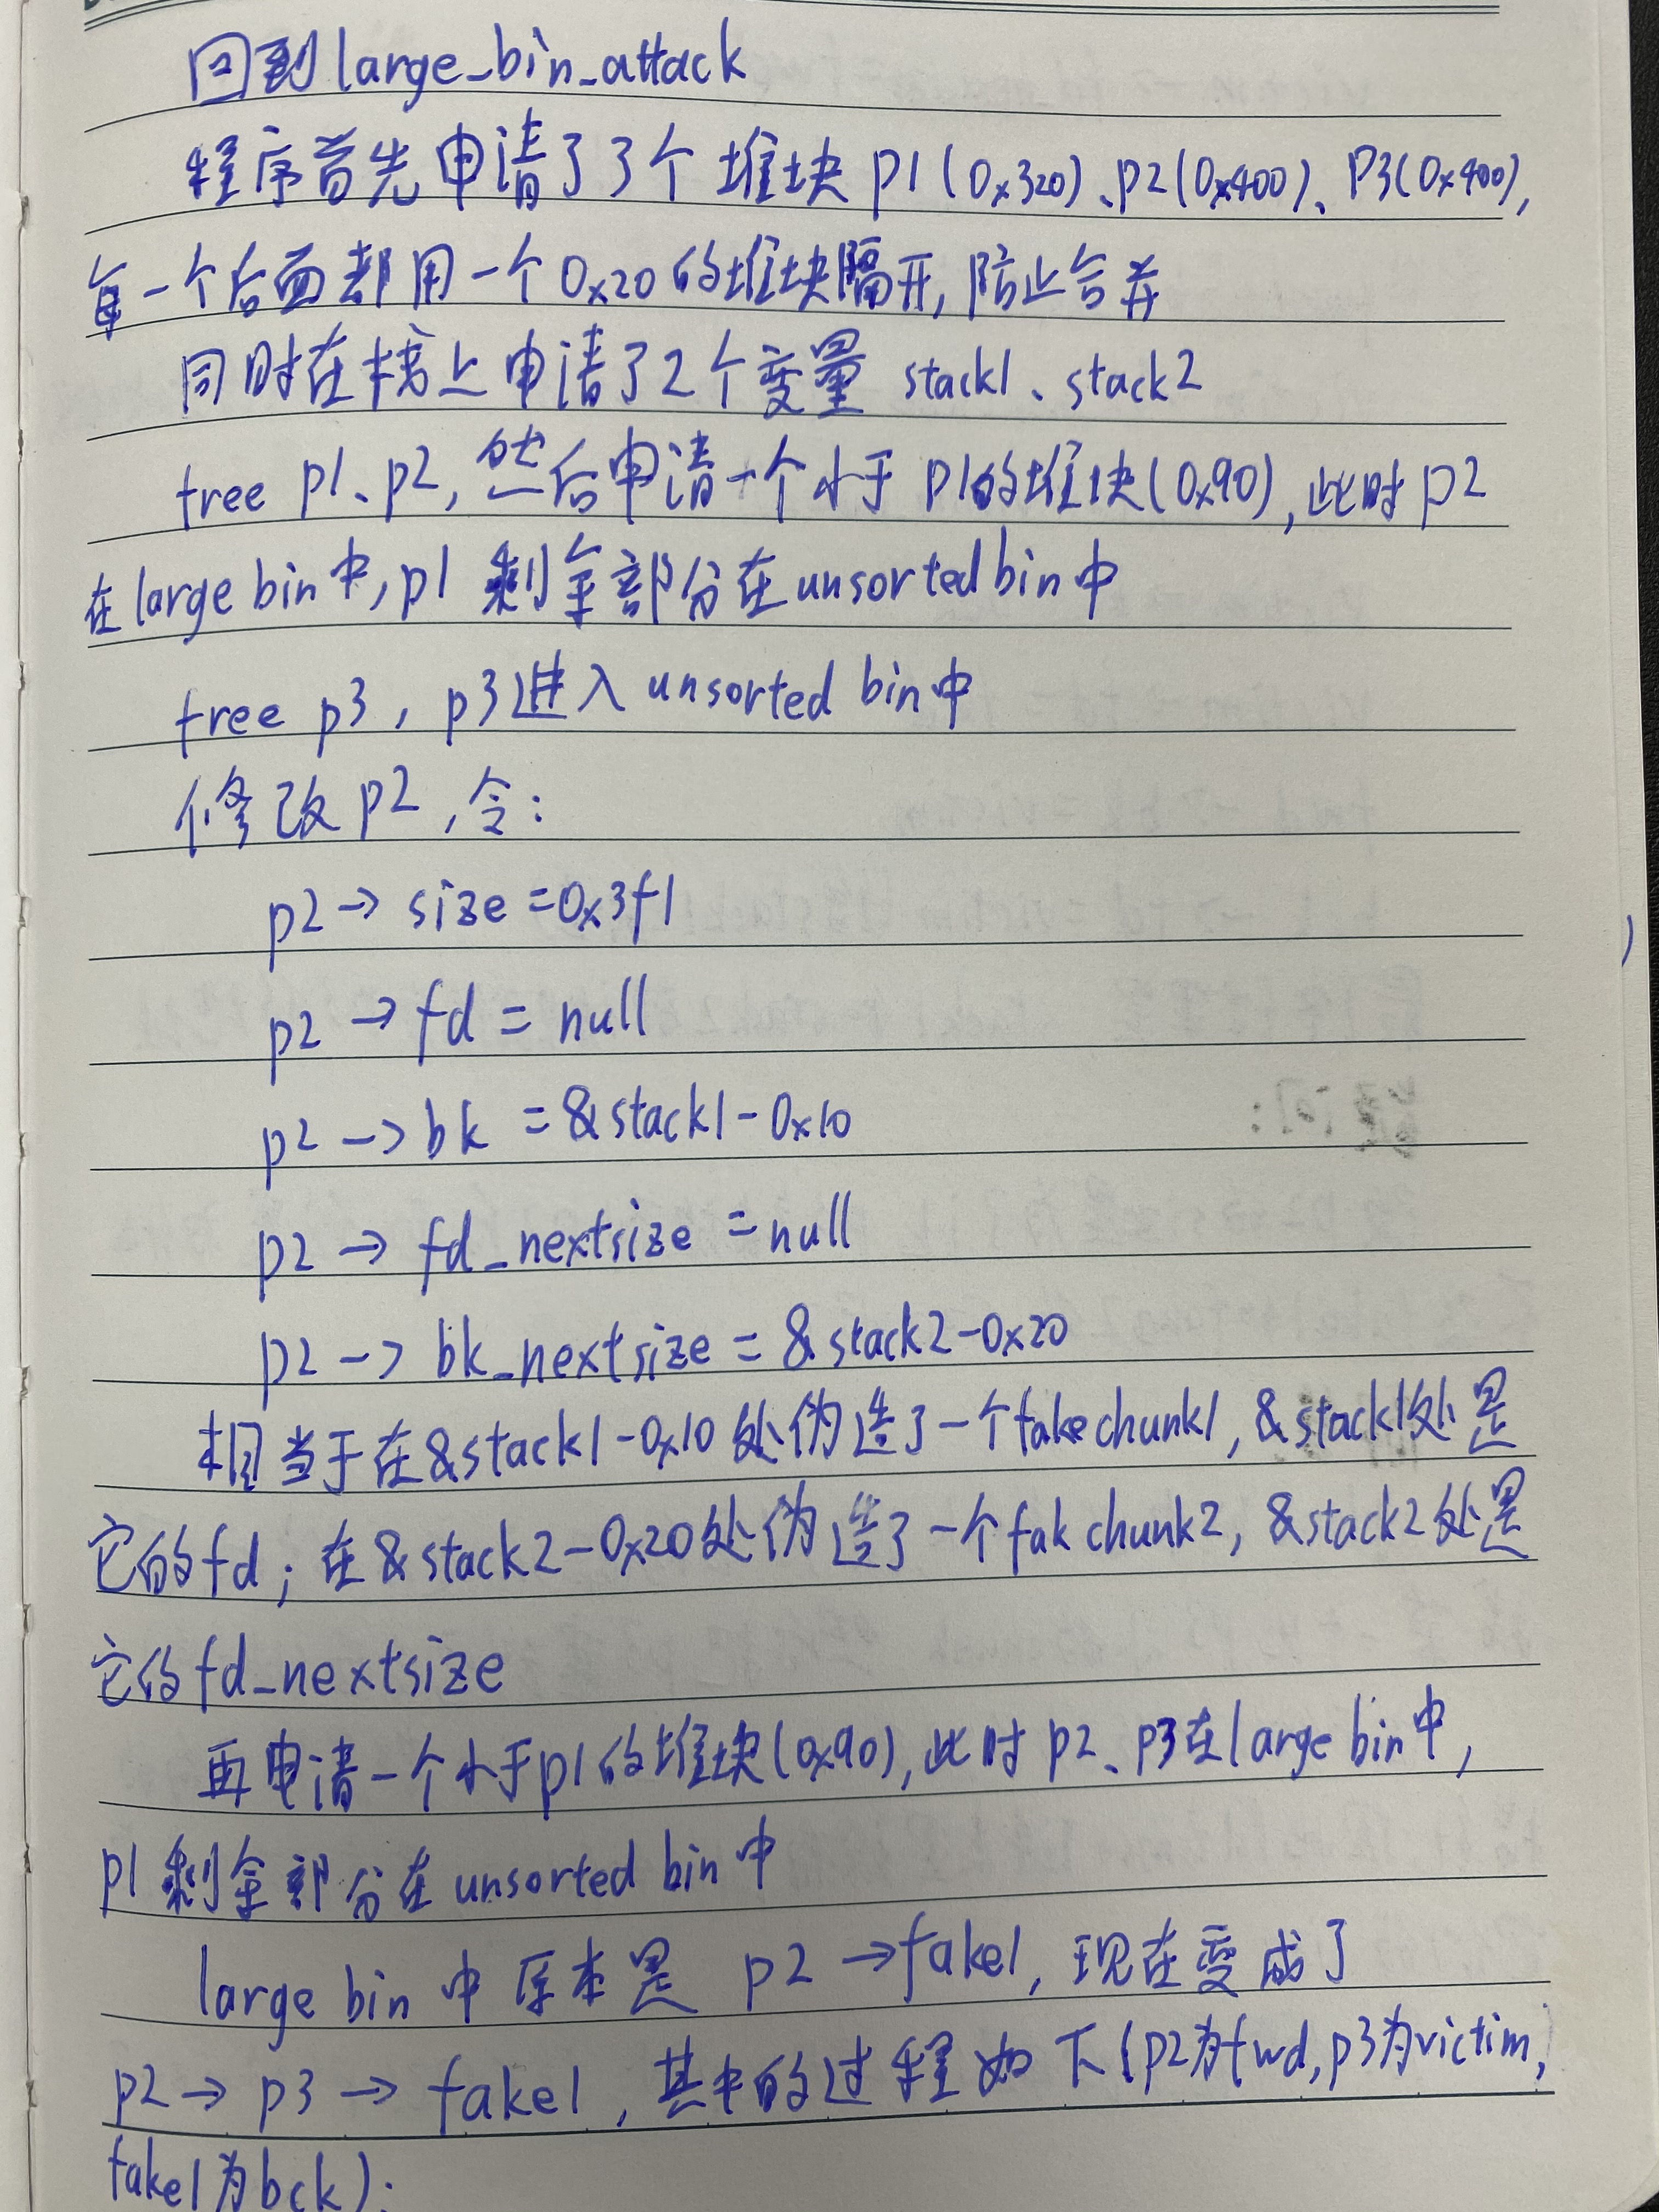 回到large_bin_attack
程序首先申请了3个堆块p1(0x320)、p2(0x400)、P3(0x400),
每一个后面都用一个0x20的堆块隔开,防止合并
同时在栈上申请了2个变量 stack1、stack2
free p1、p2,然后申请一个小于p1的堆块(0x90),此时p2
在large bin中,p1剩余部分在unsorted bin中
free p3,p3进入unsorted bin中
修改p2,令:
p2→size=0x3f1
p2→fd=null
p2→bk=&stack1-0x10
p2→fd_nextsize=null
p2→bk_nextsize=&stack2-0x20
相当于在&stack1-0x10处伪造了一个fake chunk1,&stack1处是
它的fd;在&stack2-0x20处伪造了一个fak chunk2,&stack2处是
它的fd_nextsize
再申请一个小于p1的堆块(0x90),此时p2、p3在large bin中,
p1剩余部分在unsorted bin中
large bin中原本是 p2→fake1,现在变成了
p2→p3→fake1,其中的过程如下(p2为fwd,p3为victim,
fake1为bck):